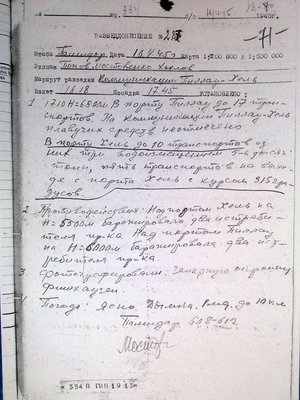 334
14.4.45
РАЗВЕДДОНЕСЕНИЕ № 2
-71-
Штаба Помидор Дата 14.4.45г Карта 1:200 600 и 1:500 000
Экипаж Попов Мостовенко Козлов
Маршрут разведки Коммуникации Пиллау-Хель
16.18 Посадка 17.45 УСТАНОВЛЕНО:
1. 17 10 Н=6800м В порту Пиллау до 17 тран-
спортов. На коммуникации Пиллау-Хель
плавучих средств неотмечено
В порту Хель до 10 транспортов из
них три водоизмещением
тонн, пять транспортов на выхо-
де с порта Хель с курсом 315 Гра-
дусов.
2. Противодействие: Над портом Хель на
Н=5500м баражировало два истреби-
теля Над портом Пиллау
на Н=6000м баражировала два ист-
ребителя
3. Фотографировали: Западную окраину
фишхаузен.
4 Погода: Ясно. Дымка. Вид. до 10 км
Помидор
334 П